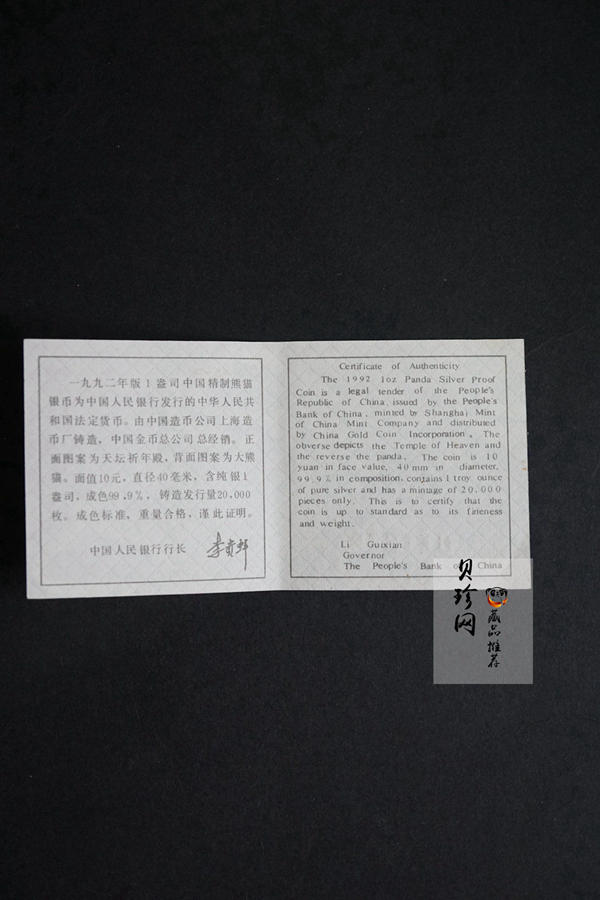 一九九二年版1盎司中国精制熊猫
银币为中国人民银行发行的中华人民共
和国法定货币。由中国造币公司上海造
币厂铸造，中国金币总公司总经销。正
面图案为天坛祈年殿，背面图案为大熊
猫。面值10元，直径40毫米，含纯银1
盎司，成色99.9%，铸造发行量20,000
枚。成色标准，重量合格，谨此证明。
中国人民银行行长 李贵鲜
Certificate of Authenticity
The 1992 1oz Panda Silver Proof
Coin is a legal tender of the People's
Republic of China, issued by the People's
Bank of China, minted by Shanghai Mint
of China Mint Company and distributed
by China Gold Coin Incorporation. The
obverse depicts the Temple of Heaven and
the reverse the panda. The coin is 10
yuan in face value, 40 mm in diameter,
99.9% in composition, contains 1 troy ounce
of pure silver and has a mintage of 20,000
pieces only. This is to certify that the
coin is up to standard as to its fineness
and weight.
Li Guixian
Governor
The People's Bank of China
贝珍网
藏品推荐